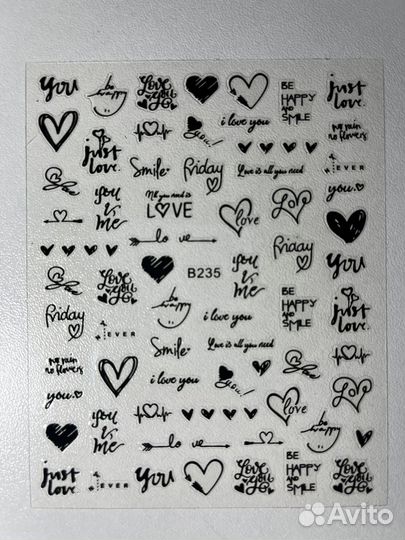 you
be happy
Love you
BE HAPPY AND SMILE
just love.
i love you
you!
no rain no flowers
just love.
Smile
Friday
Love is all you need
4 EVER
you
you & me
All you need is LOVE
love
Love
lo ve
Friday
you
Love you
B235
you & me
be happy
BE HAPPY AND SMILE
just love.
Friday
4 EVER
i love you
Smile
Love is all you need
no rain no flowers
you
i love you
you!
Love
you & me
love
be happy
lo ve
just love.
4 EVER
you
Love you
BE HAPPY AND SMILE
Love you
Avito